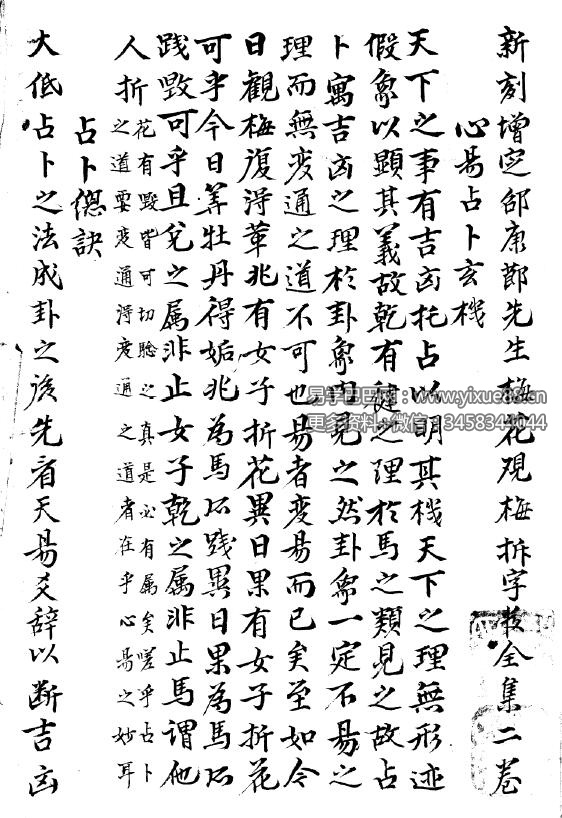 新刻增定邵康節先生梅花观梅拆字数全集二卷
心易占卜玄機
天下之事有吉凶托占以明其机天下之理無形迹
假象以顕其義故乾有健之理於馬之類見之故占
卜寓吉凶之理於卦象内見之然卦象一定不易之
理而無変通之道不可也易者変易而已矣至如今
日觀梅復淂革兆有女子折花異日果有女子折花
可乎今日筭牡丹得姤兆為馬所践異日果為馬所
践毁可乎且兌之属非止女子乾之属非止馬謂他
人折花有毁皆可切騐之真是必有属矣嗟乎占卜
之道要变通淂变通之道者在乎心易之妙耳
占卜偬訣
大低占卜之法成卦之後先看天易爻辞以断吉凶
易学巴巴网：www.yixue88.cn
更多资料+微信：13458344044